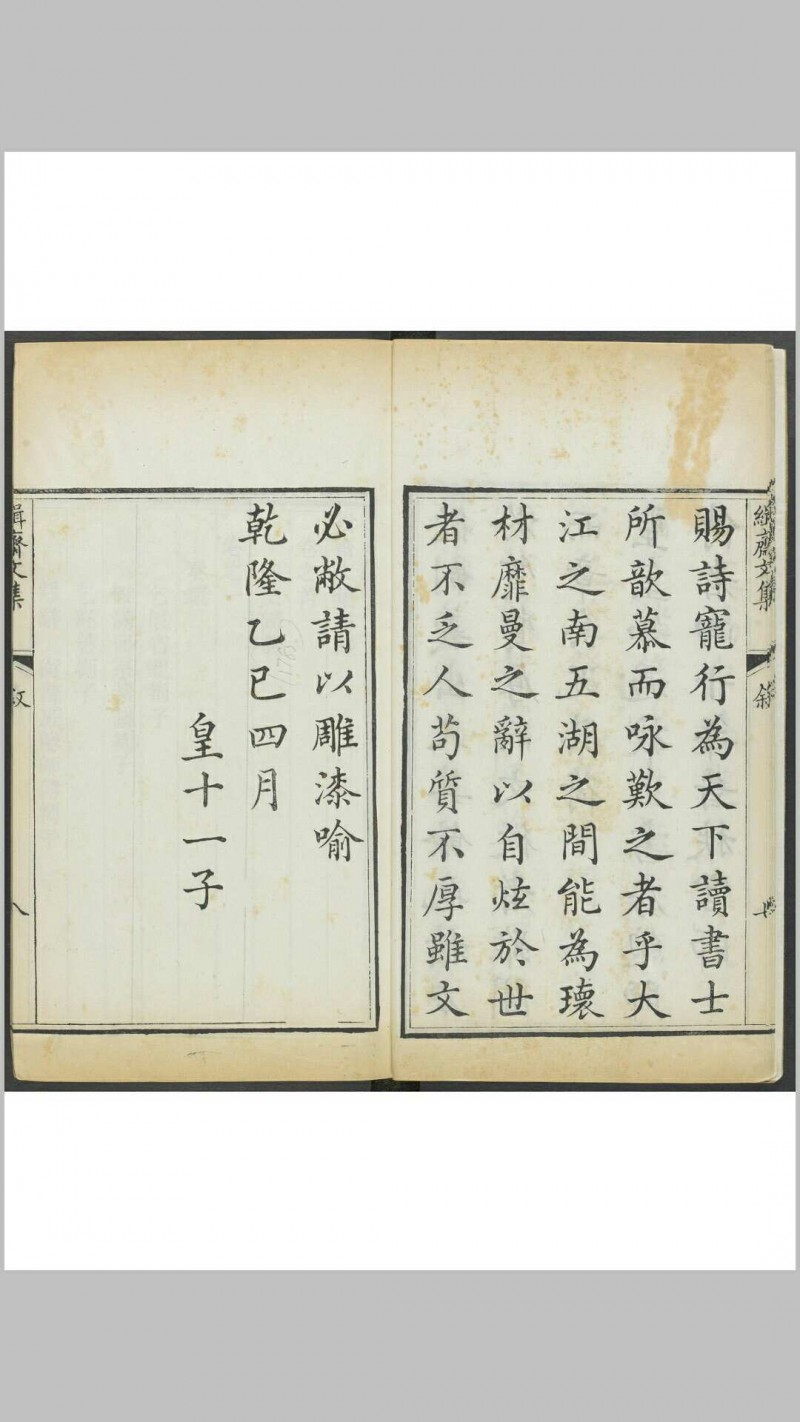 緝齋文集
敘
七
賜詩寵行為天下讀書士
所歆慕而咏歎之者乎大
江之南五湖之間能為瓌
材靡曼之辭以自炫於世
者不乏人苟質不厚雖文
必敝請以雕漆喻
乾隆乙巳四月
皇十一子
緝齋文集
敘
八